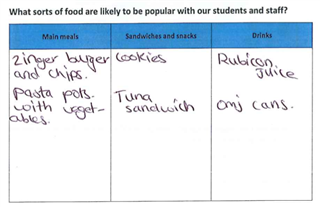 What sorts of food are likely to be popular with our students and staff?
Main meals
Sandwiches and snacks
Drinks
Zinger burger
and chips.
pasta pots.
with veget-
ables.
Cookies
Tuna
sandwich
Rubicon
Juice
cans.